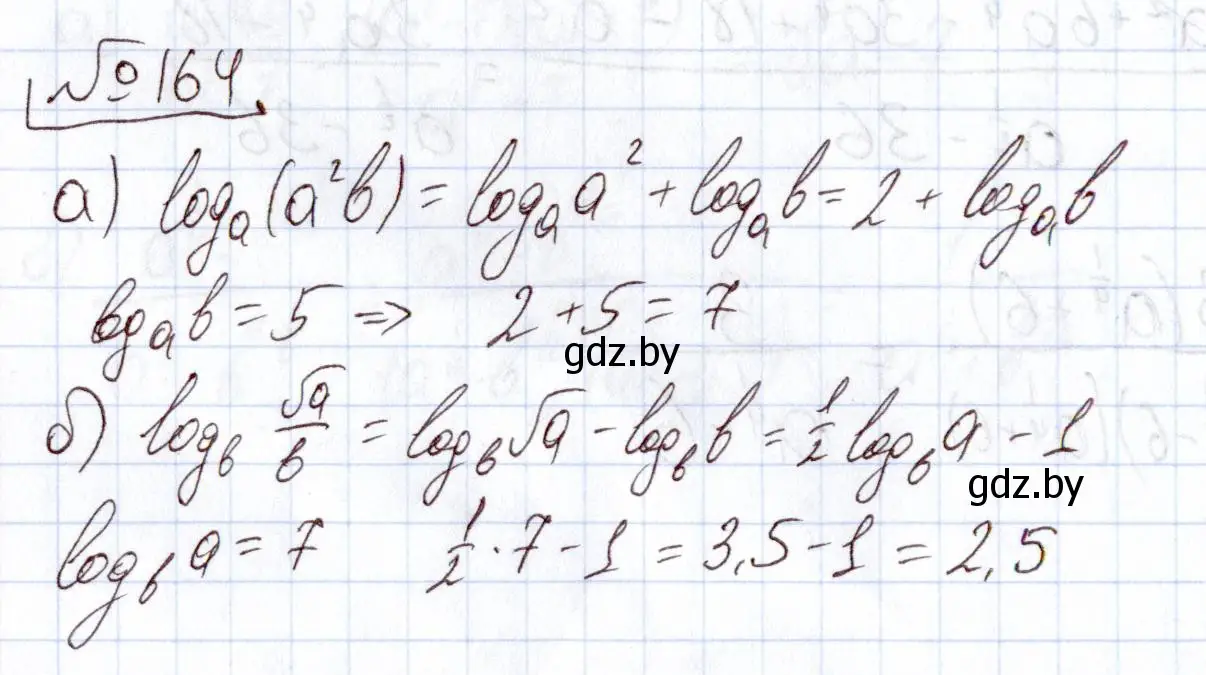 № 164
а) log_a(a²b) = log_a a² + log_a b = 2 + log_a b
log_a b = 5 => 2 + 5 = 7
gdz.by
б) log_b √a/b = log_b √a - log_b b = 1/2 log_b a - 1
gdz.by
log_b a = 7 1/2 · 7 - 1 = 3,5 - 1 = 2,5